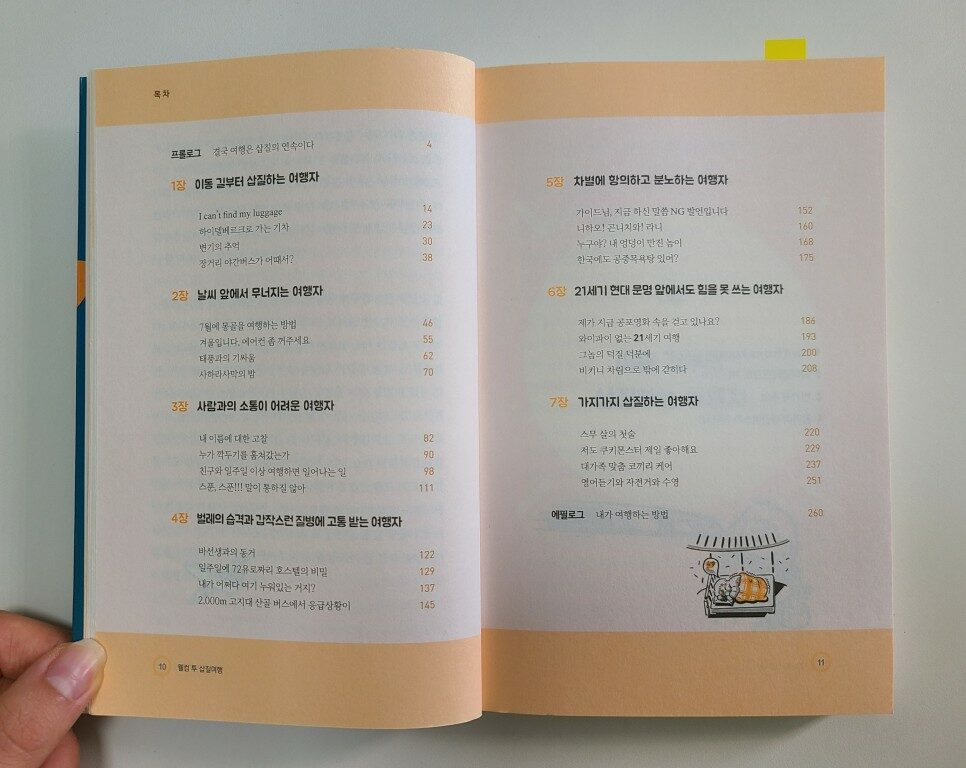 목차
프롤로그 결국 여행은 삽질의 연속이다 4
1장 이동 길부터 삽질하는 여행자
I can't find my luggage 14
하이델베르크로 가는 기차 23
변기의 추억 30
장거리 야간버스가 어때서? 38
2장 날씨 앞에서 무너지는 여행자
7월에 몽골을 여행하는 방법 46
겨울입니다, 에어컨 좀 꺼주세요 55
태풍과의 기싸움 62
사하라사막의 밤 70
3장 사람과의 소통이 어려운 여행자
내 이름에 대한 고찰 82
누가 깍두기를 훔쳐갔는가 90
친구와 일주일 이상 여행하면 일어나는 일 98
스푼, 스푼!!! 말이 통하질 않아 111
4장 벌레의 습격과 갑작스런 질병에 고통 받는 여행자
바선생과의 동거 122
일주일에 72유로짜리 호스텔의 비밀 129
내가 어쩌다 여기 누워있는 거지? 137
2,000m 고지대 산골 버스에서 응급상황이 145
10 웰컴 투 삽질여행
5장 차별에 항의하고 분노하는 여행자
가이드님, 지금 하신 말씀 NG 발언입니다 152
니하오! 곤니치와! 라니 160
누구야? 내 엉덩이 만진 놈이 168
한국에도 공중목욕탕 있어? 175
6장 21세기 현대 문명 앞에서도 힘을 못 쓰는 여행자
제가 지금 공포영화 속을 걷고 있나요? 186
와이파이 없는 21세기 여행 193
그놈의 덕질 덕분에 200
비키니 차림으로 밖에 갇히다 208
7장 가지가지 삽질하는 여행자
스무 살의 첫술 220
저도 쿠키몬스터 제일 좋아해요 229
대가족 맞춤 코끼리 케어 237
영어듣기와 자전거와 수영 251
에필로그 내가 여행하는 방법 260
11